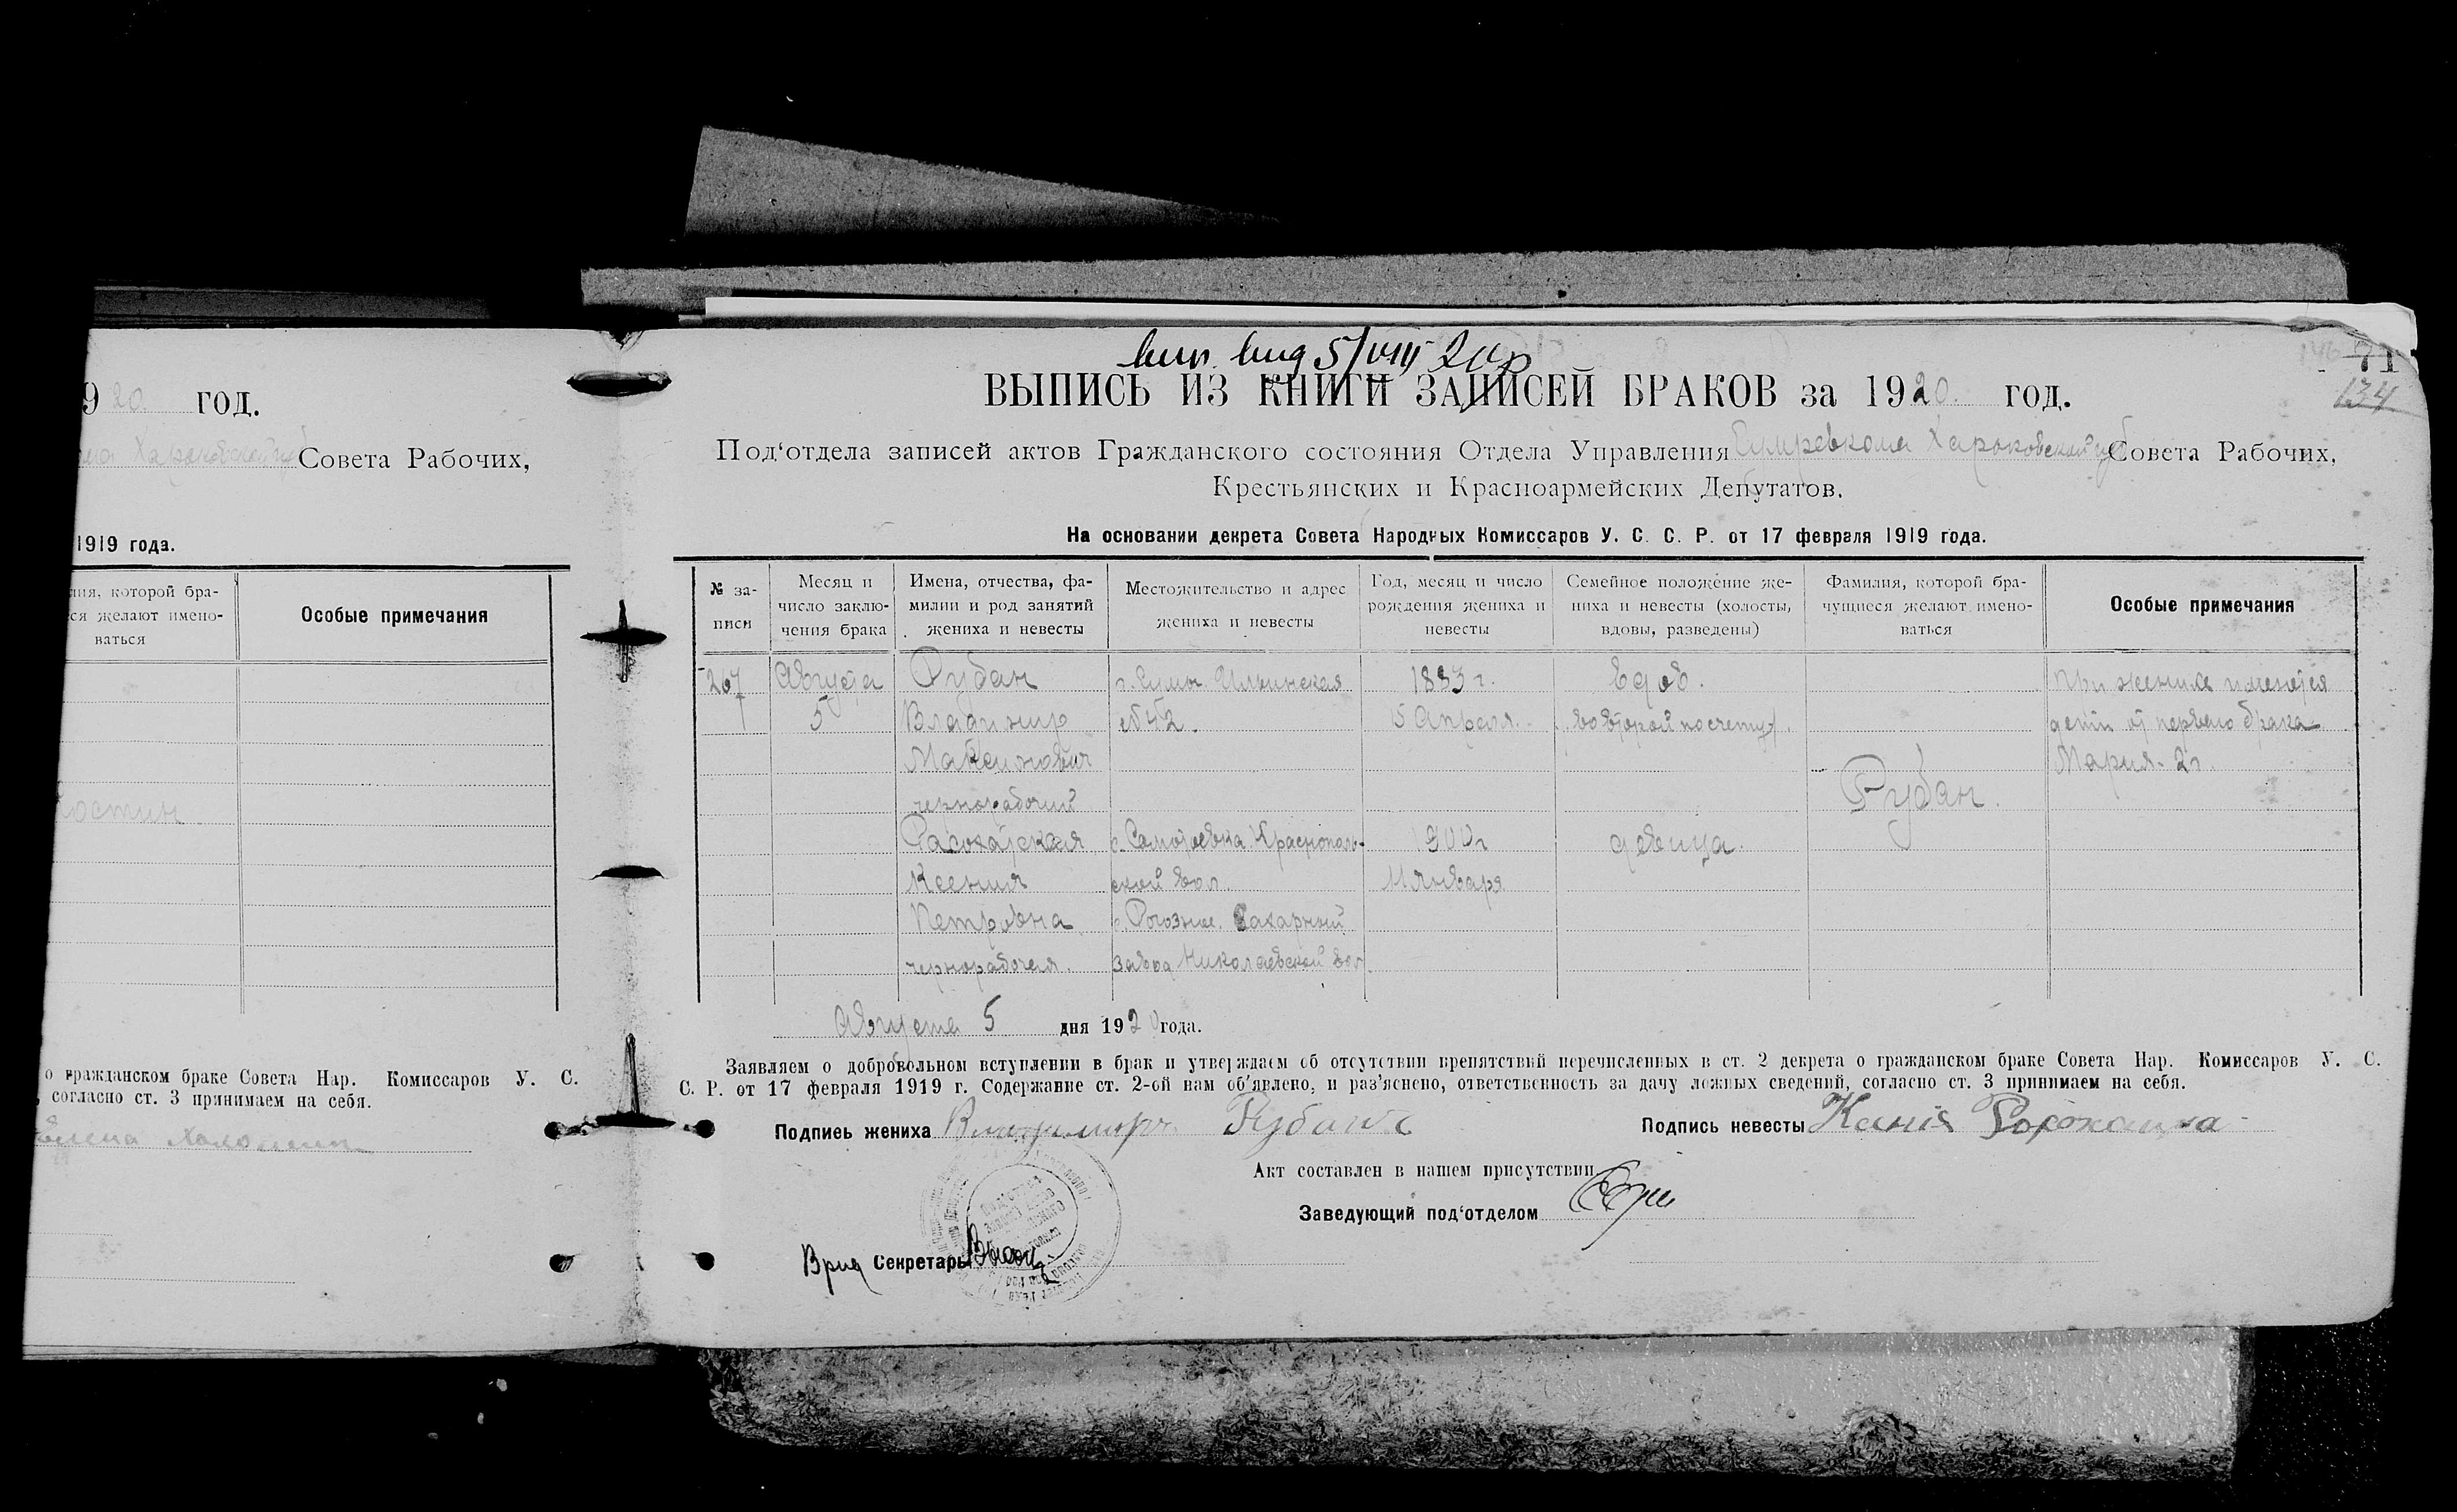 1920 год.
Совета Рабочих,
1919 года.
которой бра-
ся желают имено-
ваться
Особые примечания
о гражданском браке Совета Нар. Комиссаров У. С.
согласно ст. 3 принимаем на себя.
5/VIII 20
71
134
ВЫПИСЬ ИЗ КНИГИ ЗАПИСЕЙ БРАКОВ за 1920 год.
Под‘отдела записей актов Гражданского состояния Отдела Управления Сумревкома Харьковской губ Совета Рабочих,
Крестьянских и Красноармейских Депутатов.
На основании декрета Совета Народных Комиссаров У. С. С. Р. от 17 февраля 1919 года.
№ за-
писи
Месяц и
число заклю-
чения брака
Имена, отчества, фа-
милии и род занятий
жениха и невесты
Местожительство и адрес
жениха и невесты
Год, месяц и число
рождения жениха и
невесты
Семейное положение же-
ниха и невесты (холосты,
вдовы, разведены)
Фамилия, которой бра-
чущиеся желают имено-
ваться
Особые примечания
267
Августа
5
Рубан
Владимир
Максимович
чернорабочий
г. Сумы. Ильинская
№ 42.
1883 г.
15 Апреля.
вдов.
во второй по счету
Рубан.
При женихе имеются
дети от первого брака
Мария - 2 г.
Ксения
Петровна
чернорабочая.
с. Самотоевка Краснополь-
ской вол.
с. Рогозное. Сахарный
завод Николаевской вол.
1900 г
11 января
девица.
Августа 5 дня 1920 года.
Заявляем о добровольном вступлении в брак и утверждаем об отсутствии препятствий перечисленных в ст. 2 декрета о гражданском браке Совета Нар. Комиссаров У. С.
С. Р. от 17 февраля 1919 г. Содержание ст. 2-ой нам об‘явлено, и раз‘яснено, ответственность за дачу ложных сведений, согласно ст. 3 принимаем на себя.
Подпись жениха Владимиръ Рубанъ
Подпись невесты
Акт составлен в нашем присутствии
Заведующий под‘отделом
Врид Секретарь